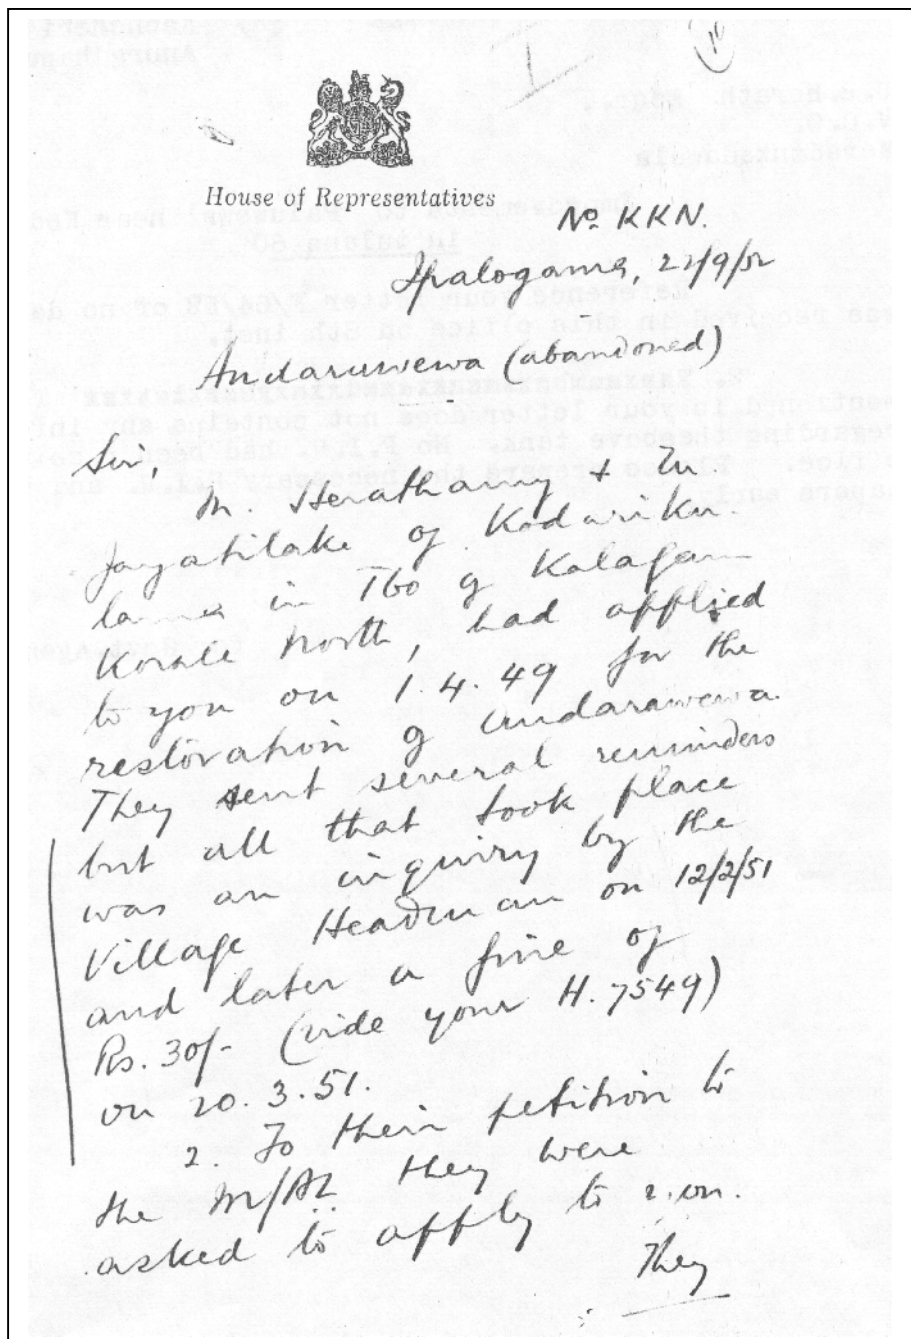 House of Representatives
No KKN.
Ipalogama, 22/9/52
Andaruwewa (abandoned)
Sir,
M. Herathamy &
Jayatilake of Kadariku-
lama in 760 of Kalagam
Korale North, had applied
to you on 1.4.49 for the
restoration of Andarawewa.
They sent several reminders
but all that took place
was an inquiry by the
Village Headman on 12/2/51
and later a fine of
Rs. 30/- (vide your H. 7549)
on 20.3.51.
2. To their petition to
the M/AL they were
asked to apply to
They